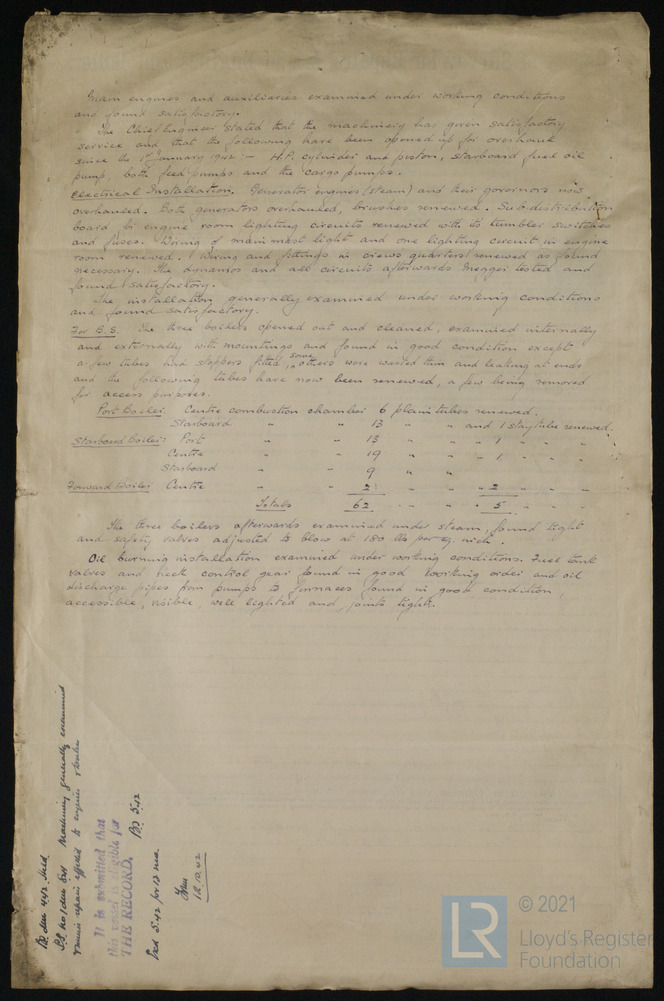 Main engines and auxiliaries examined under working conditions
and found satisfactory.
The Chief Engineer stated that the machinery has given satisfactory
service and that the following have been opened up for overhaul
since the 1st January 1942 :- H.P. cylinder and piston, starboard fuel oil
pump, both feed pumps and the cargo pumps.
Electrical Installation. Generator engines (steam) and their governors now
overhauled. Both generators overhauled, brushes renewed. Sub-distribution
board for engine room lighting circuits renewed with its tumbler switches
and fuses. Wiring of mainmast light and one lighting circuit in engine
room renewed. Wiring and fittings in crews quarters renewed as found
necessary. The dynamos and all circuits afterwards Megger tested and
found satisfactory.
The installation generally examined under working conditions
and found satisfactory.
For B.S. The three boilers opened out and cleaned, examined internally
and externally with mountings and found in good condition except
a few tubes had stoppers fitted some others were wasted thin and leaking at ends
and the following tubes have now been renewed, a few being removed
for access purposes.
Port Boiler: Centre combustion chamber 6 plain tubes renewed.
Starboard " " 13 " " and 1 stay tube renewed.
Starboard Boiler: Port " " 13 " " " 1 " " "
Centre " " 19 " " " 1 " " "
Starboard " " 9 " "
Forward Boiler: Centre " " 2 " " " 2 " " "
Totals 62 " " " 5 " "
The three boilers afterwards examined under steam, found tight
and safety valves adjusted to blow at 180 lbs per sq. inch.
Oil burning installation examined under working conditions. Fuel tank
valves and deck control gear found in good working order and oil
discharge pipes from pumps to furnaces found in good condition,
accessible, visible, well lighted and joints tight.
Machinery generally examined
It is submitted that
this vessel is eligible for
THE RECORD. BS 5.42
18.12.42
LR
© 2021
Lloyd's Register
Foundation